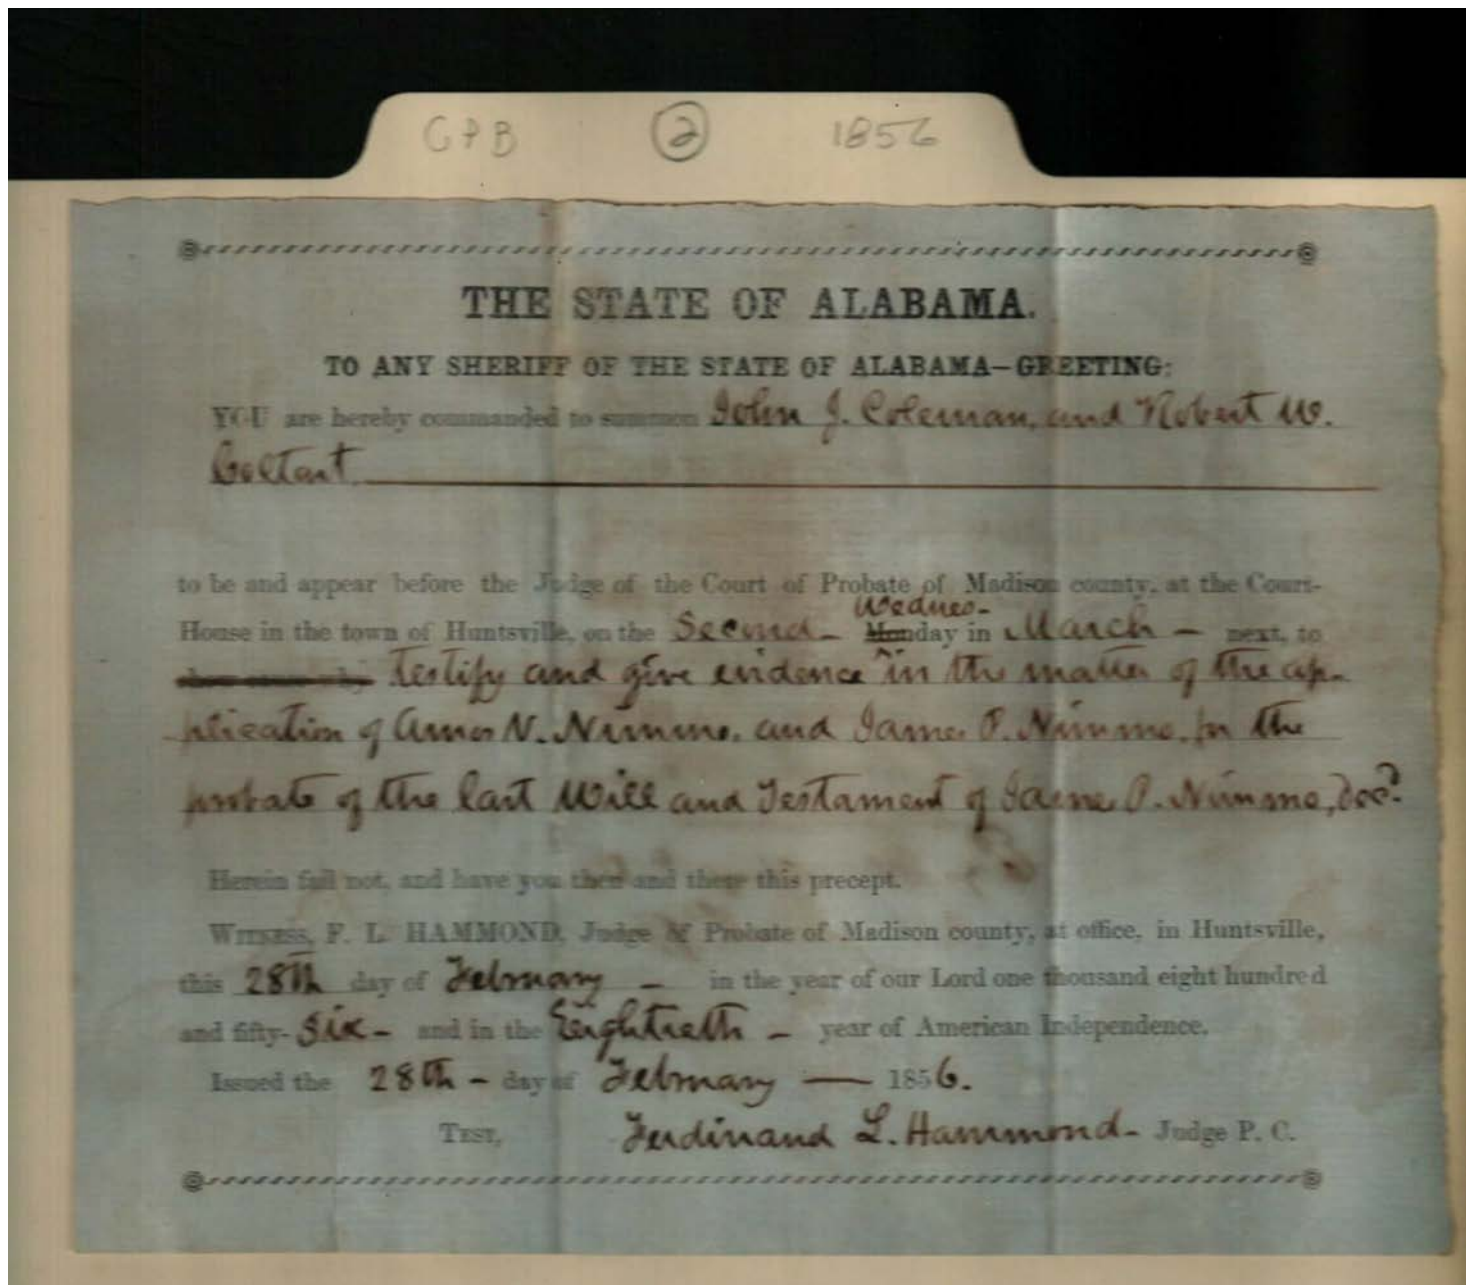 GPB 2 1856
THE STATE OF ALABAMA.
TO ANY SHERIFF OF THE STATE OF ALABAMA—GREETING:
YOU are hereby commanded to summon John J. Coleman, and Robert W.
Coltart
to be and appear before the Judge of the Court of Probate of Madison county, at the Court-
Wednes-
House in the town of Huntsville, on the Second - Monday in March - next, to
testify and give evidence in the matter of the ap-
plication of Amos N. Nimmo, and James P. Nimmo, for the
probate of the last Will and Testament of James P. Nimmo, dec'd.
Herein fail not, and have you then and there this precept.
WITNESS, F. L. HAMMOND, Judge of Probate of Madison county, at office, in Huntsville,
this 28th day of February - in the year of our Lord one thousand eight hundred
and fifty-six - and in the Eightieth - year of American Independence.
Issued the 28th - day of February — 1856.
TEST, Ferdinand L. Hammond - Judge P. C.